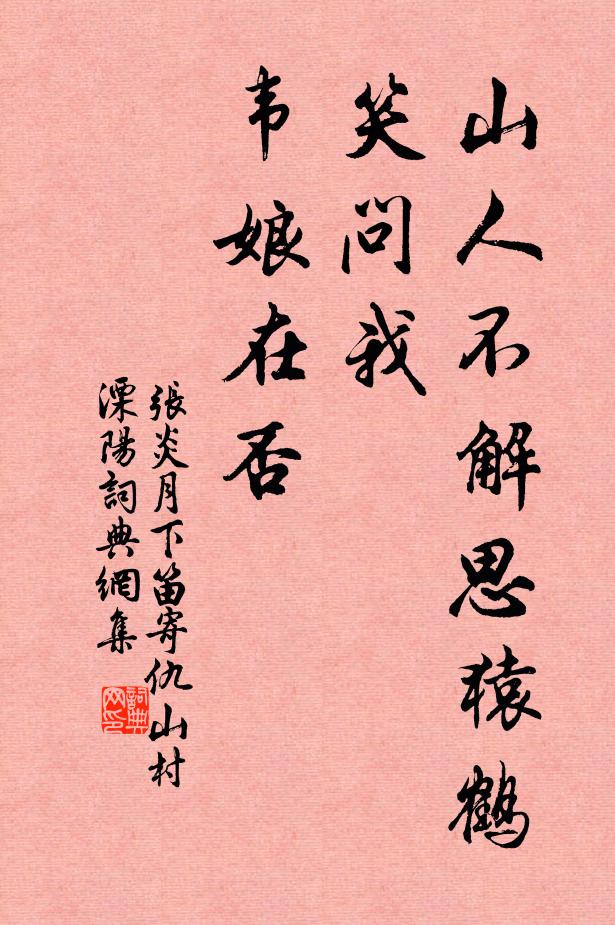 山人不解思猿鹤
笑问我
韦娘在否
張炎月下笛寄仇山村
溧陽詞典網集
詞典網印